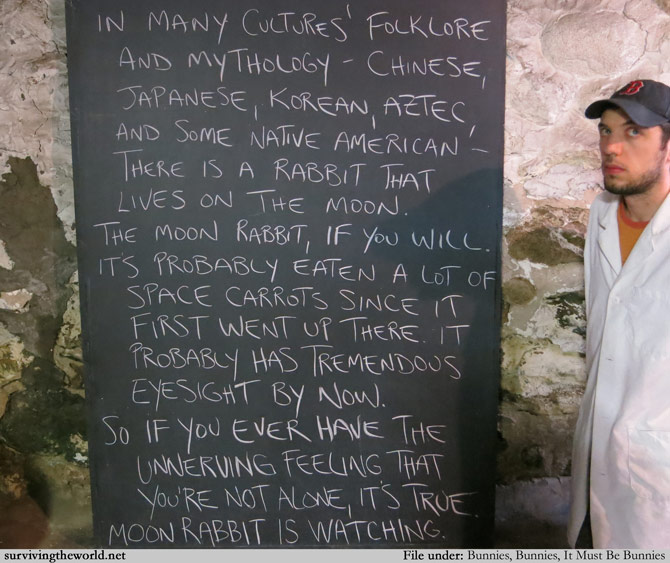 IN MANY CULTURES' FOLKLORE
AND MYTHOLOGY - CHINESE,
JAPANESE, KOREAN, AZTEC,
AND SOME NATIVE AMERICAN -
THERE IS A RABBIT THAT
LIVES ON THE MOON.
THE MOON RABBIT, IF YOU WILL.
IT'S PROBABLY EATEN A LOT OF
SPACE CARROTS SINCE IT
FIRST WENT UP THERE. IT
PROBABLY HAS TREMENDOUS
EYESIGHT BY NOW.
SO IF YOU EVER HAVE THE
UNNERVING FEELING THAT
YOU'RE NOT ALONE, IT'S TRUE.
MOON RABBIT IS WATCHING.
B
survivingtheworld.net
File under: Bunnies, Bunnies, It Must Be Bunnies